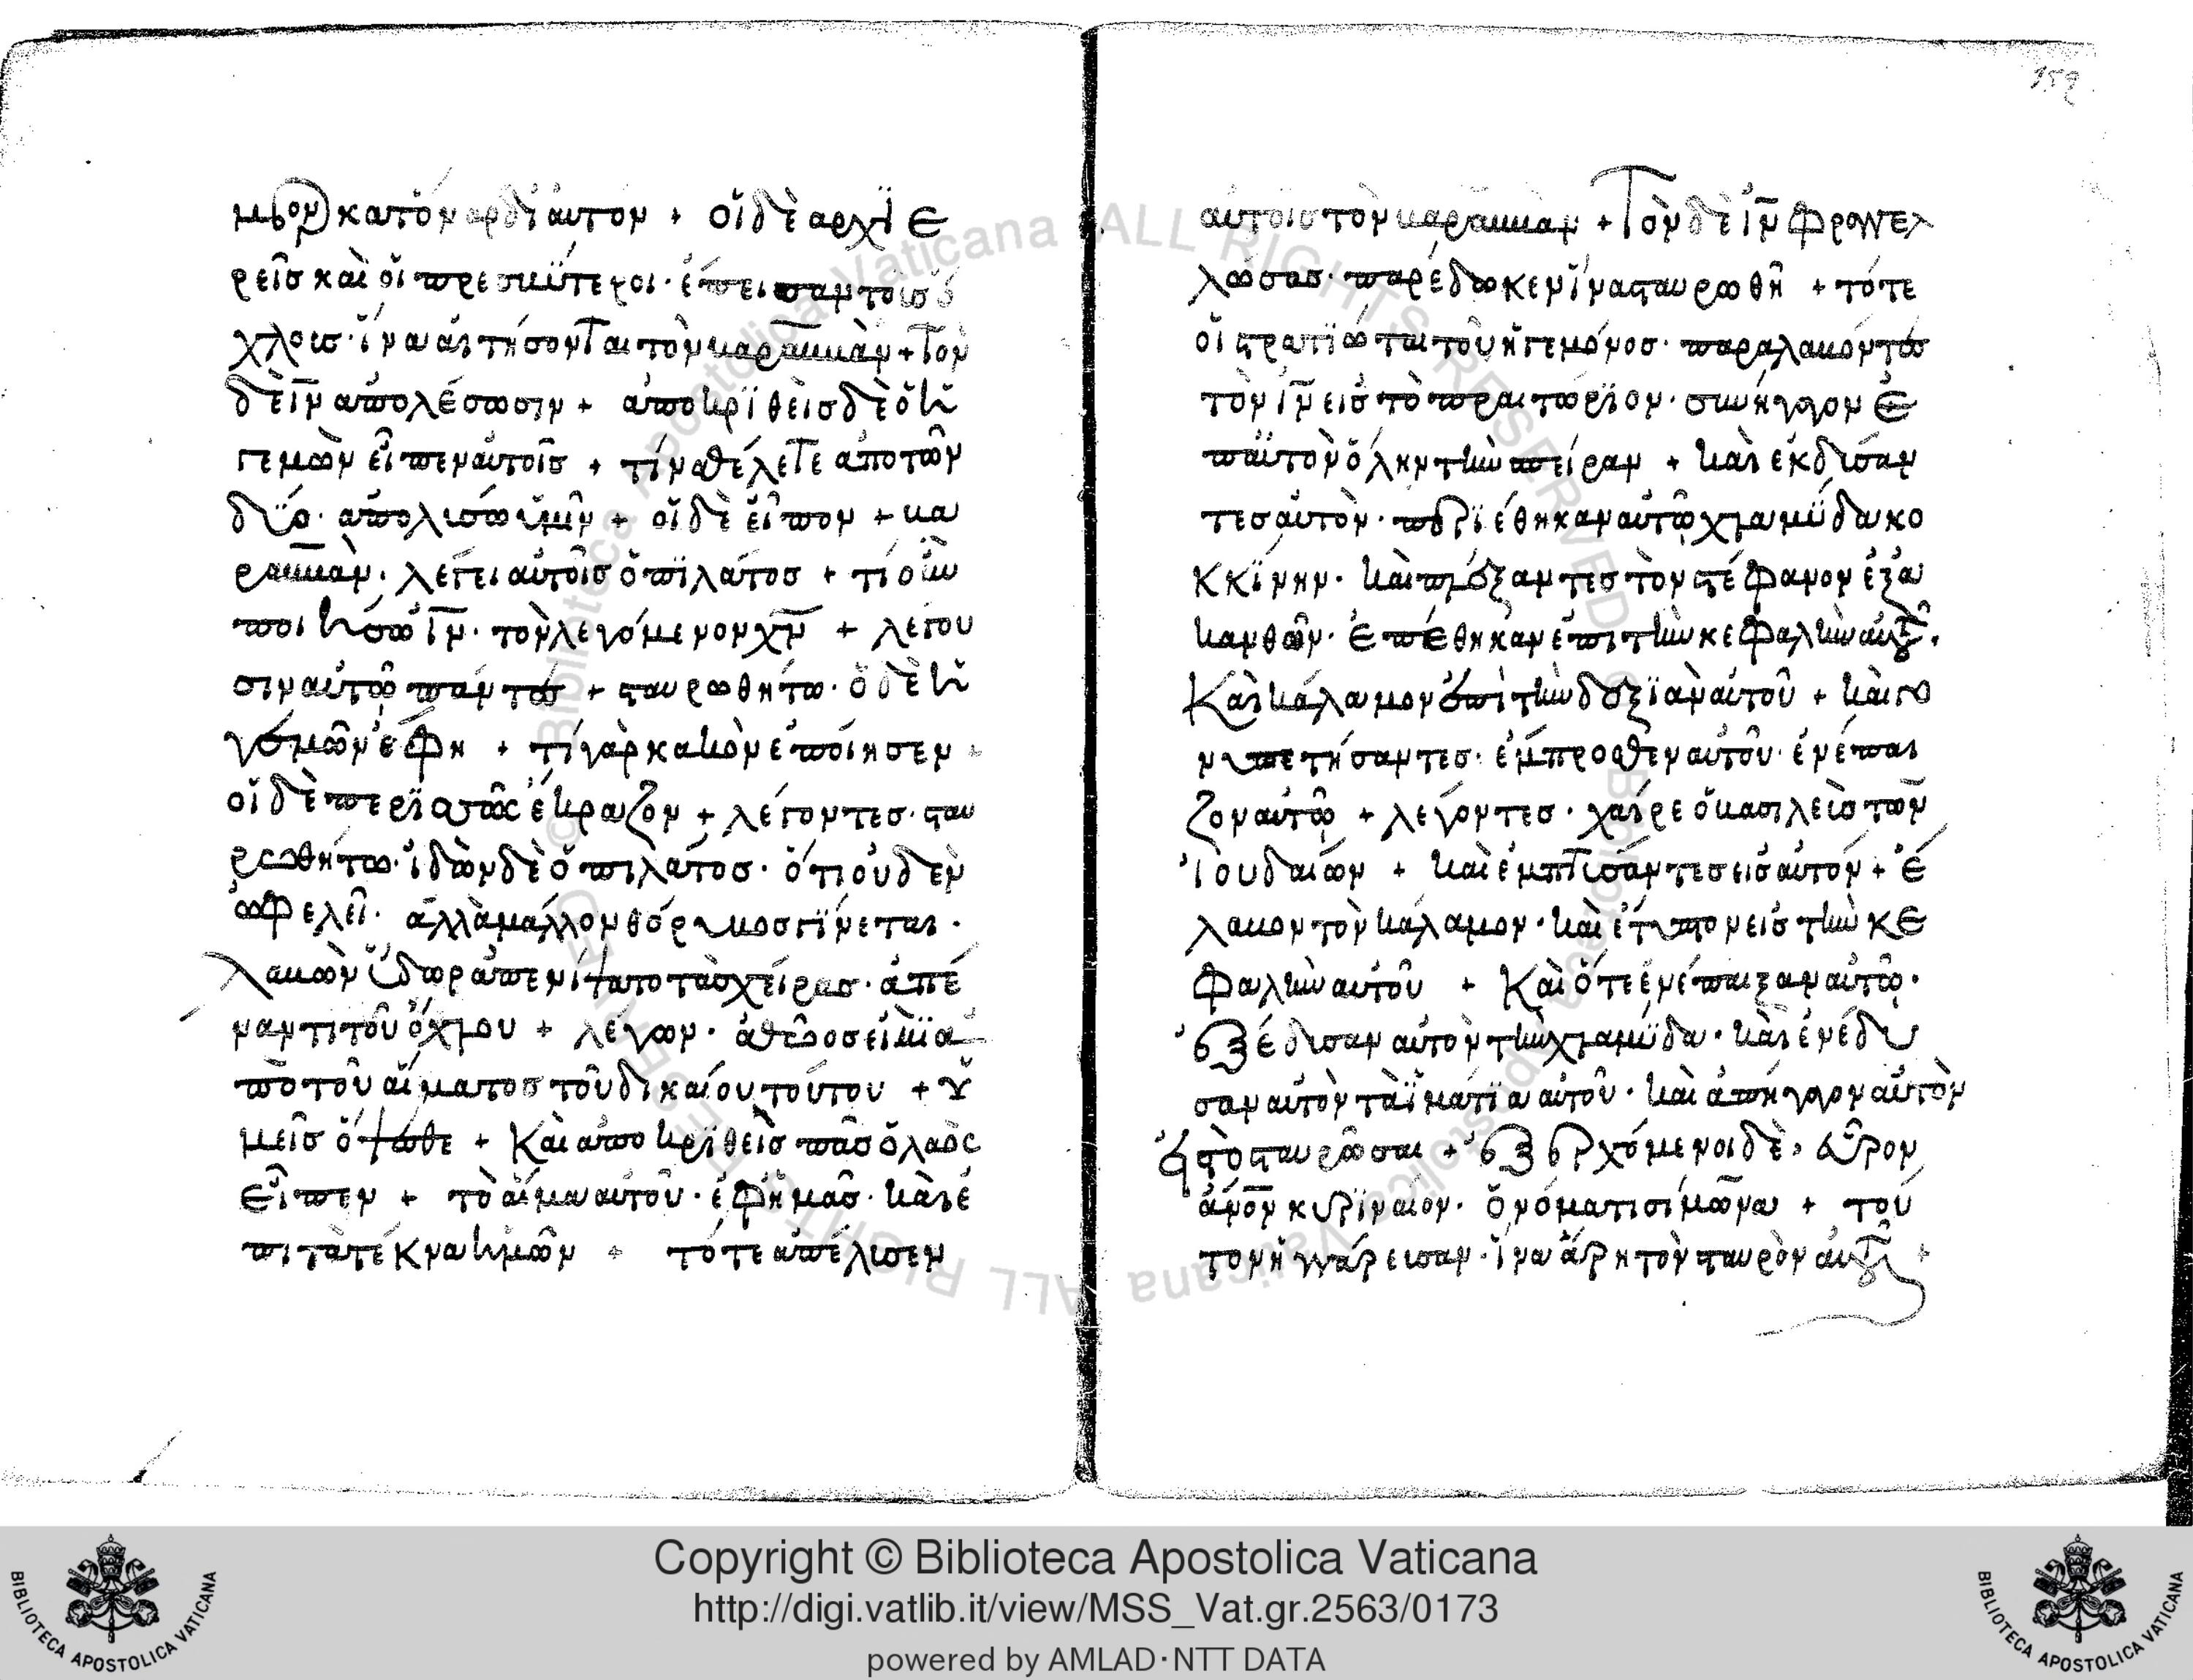 μερον κατ' όναρ δι' αυτον + οι δε αρχιε
ρεις και οι πρεσβυτεροι· έπεισαν τους ό
χλοις· ίνα αιτήσονται τον βαραββαν + τον
δε ιν απολέσωσιν + αποκριθεις δε ο η
γεμων είπεν αυτοις + τίνα θέλετε απο των
δύο· απολισω υμιν + οι δε είπον + βα
ραββαν· λεγει αυτοις ο πιλάτος + τί ουν
ποιησω ιν· τον λεγόμενον χν + λεγου
σιν αυτω παντες + σταυρωθητω· ο δε η
γεμων έφη + τί γαρ κακον εποίησεν ·
οι δε περισσως έκραζον + λέγοντες· σταυ
ρωθήτω· ιδων δε ο πιλατος· ότι ουδεν
ωφελει· αλλα μαλλον θόρυβος γίνεται·
λαβων ύδωρ απενίψατο τας χείρας· απέ
ναντι του όχλου + λέγων· αθωος ειμι α
πο του αίματος του δικαίου τούτου + υ
μεις όψεσθε + Και αποκριθεις πας ο λαος
είπεν + το αίμα αυτου· εφ' ημας· και ε
πι τα τέκνα ημων + τότε απέλισεν
159
αυτοις τον βαραββαν + Τον δε ιν φραγγελ
λώσας· παρέδωκεν ίνα σταυρωθη + τότε
οι στρατιώται του ηγεμόνος· παραλαβόντες
τον ιν εις το πραιτώριον· συνήγαγον ε
π' αυτον όλην την σπείραν + και εκδισαν
τες αυτον· περιέθηκαν αυτω χλαμύδα κο
κκίνην· και πλέξαντες τον στέφανον εξ α
κανθων· επέθηκαν επι την κεφαλην αυτου·
Και κάλαμον επι την δεξιαν αυτου + και γο
νυπετήσαντες· έμπροσθεν αυτου· ενέπαι
ζον αυτω + λεγοντες· χαίρε ο βασιλευς των
Ιουδαίων + και εμπτισαντες εις αυτον + έ
λαβον τον κάλαμον· και έτυπτον εις την κε
φαλην αυτου + Και ότε ενέπαιξαν αυτω·
εξέδισαν αυτον την χλαμύδα· και ενέδυ
σαν αυτον τα ιμάτια αυτου· και απήγαγον αυτον
εις το σταυρωσαι + εξερχόμενοι δε, εύρον
ανον κυριναίον· ονόματι σιμωνα + του
τον ηγγάρεισαν· ίνα άρη τον σταυρον αυτου +
Copyright © Biblioteca Apostolica Vaticana
http://digi.vatlib.it/view/MSS_Vat.gr.2563/0173
powered by AMLAD·NTT DATA
BIBLIOTECA APOSTOLICA VATICANA
BIBLIOTECA APOSTOLICA VATICANA